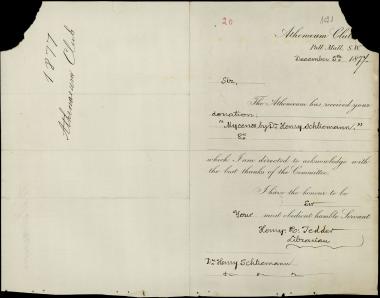 1877
Athenaeum Club
20
Athenaeum Club
Pall Mall, S.W.
December 5th 1877.
Sir,
The Athenaeum has received your
donation:
"Mycenae by Dr Henry Schliemann,"
which I am directed to acknowledge with
the best thanks of the Committee.
I have the honour to be
Sir
Your most obedient humble Servant
Henry R. Tedder
Librarian
Dr Henry Schliemann